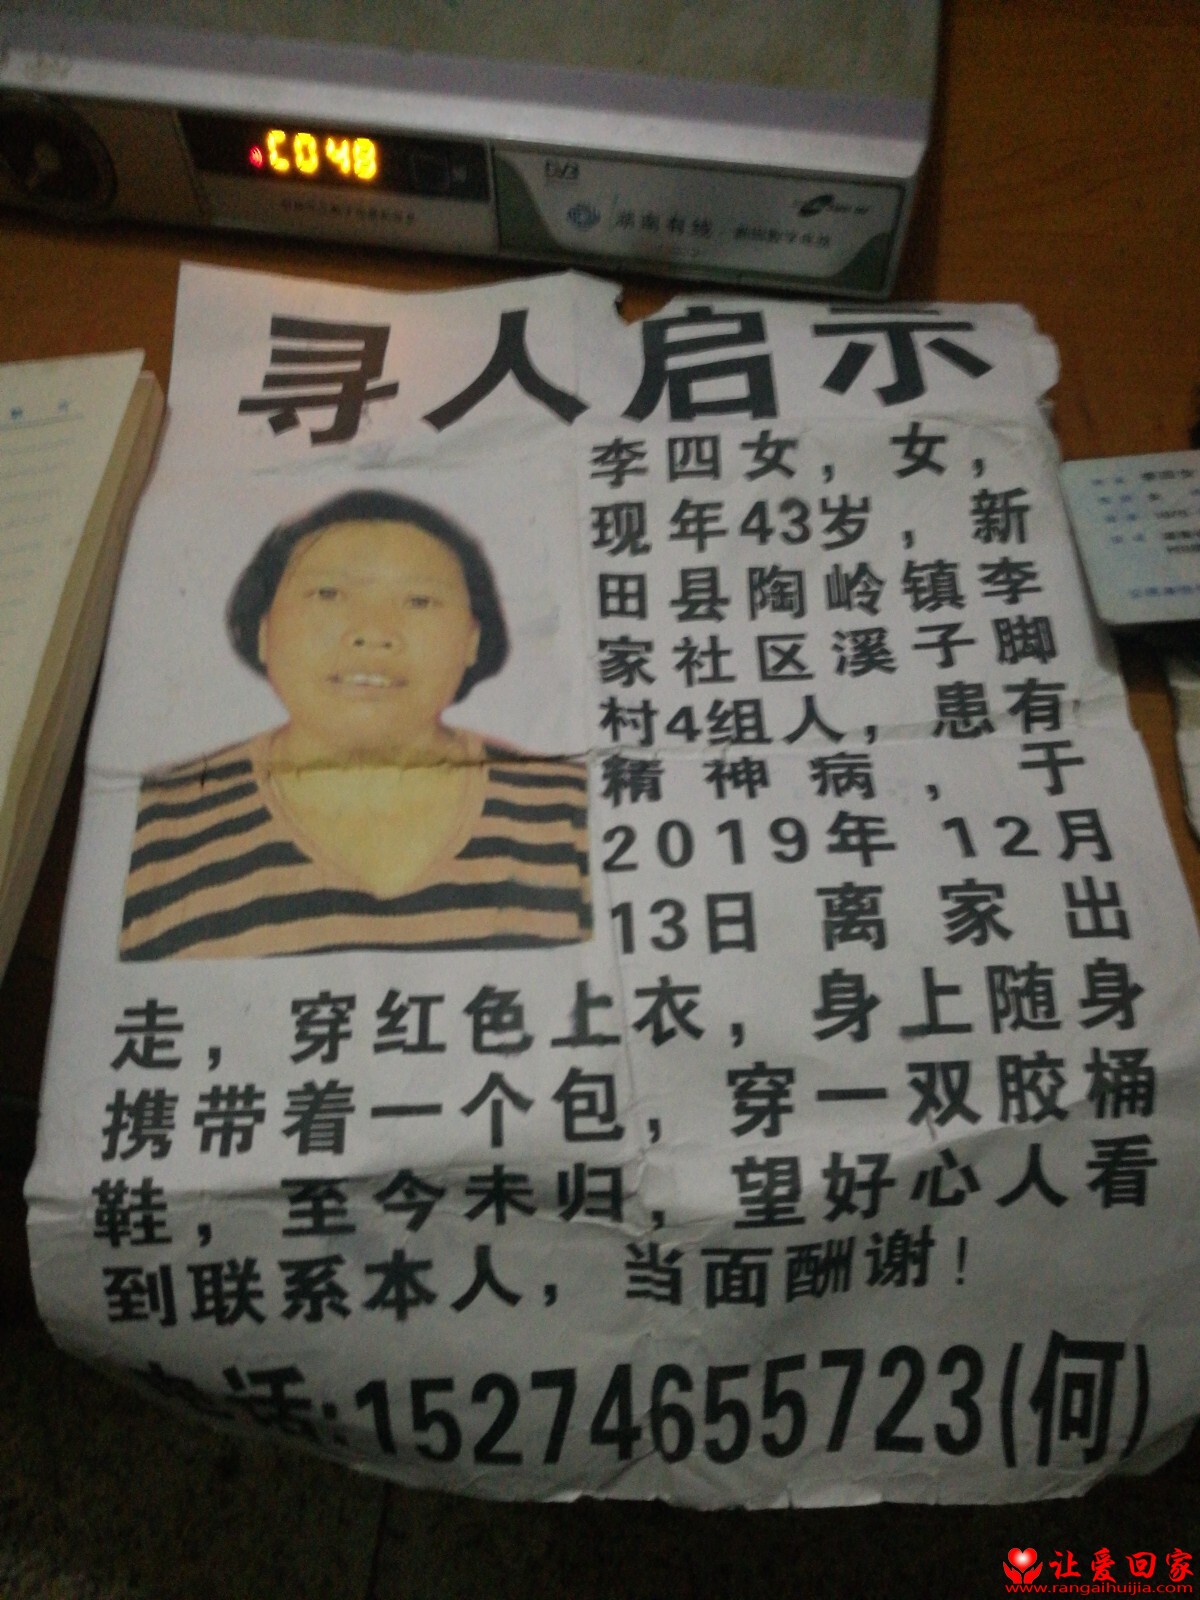 C048
DVB
湖南有线
寻人启示
李四女，女，
现年43岁，新
田县陶岭镇李
家社区溪子脚
村4组人，患有
精神病，于
2019年12月
13日离家出
走，穿红色上衣，身上随身
携带着一个包，穿一双胶桶
鞋，至今未归，望好心人看
到联系本人，当面酬谢！
电话:15274655723(何)
让爱回家
www.rangaihuijia.com